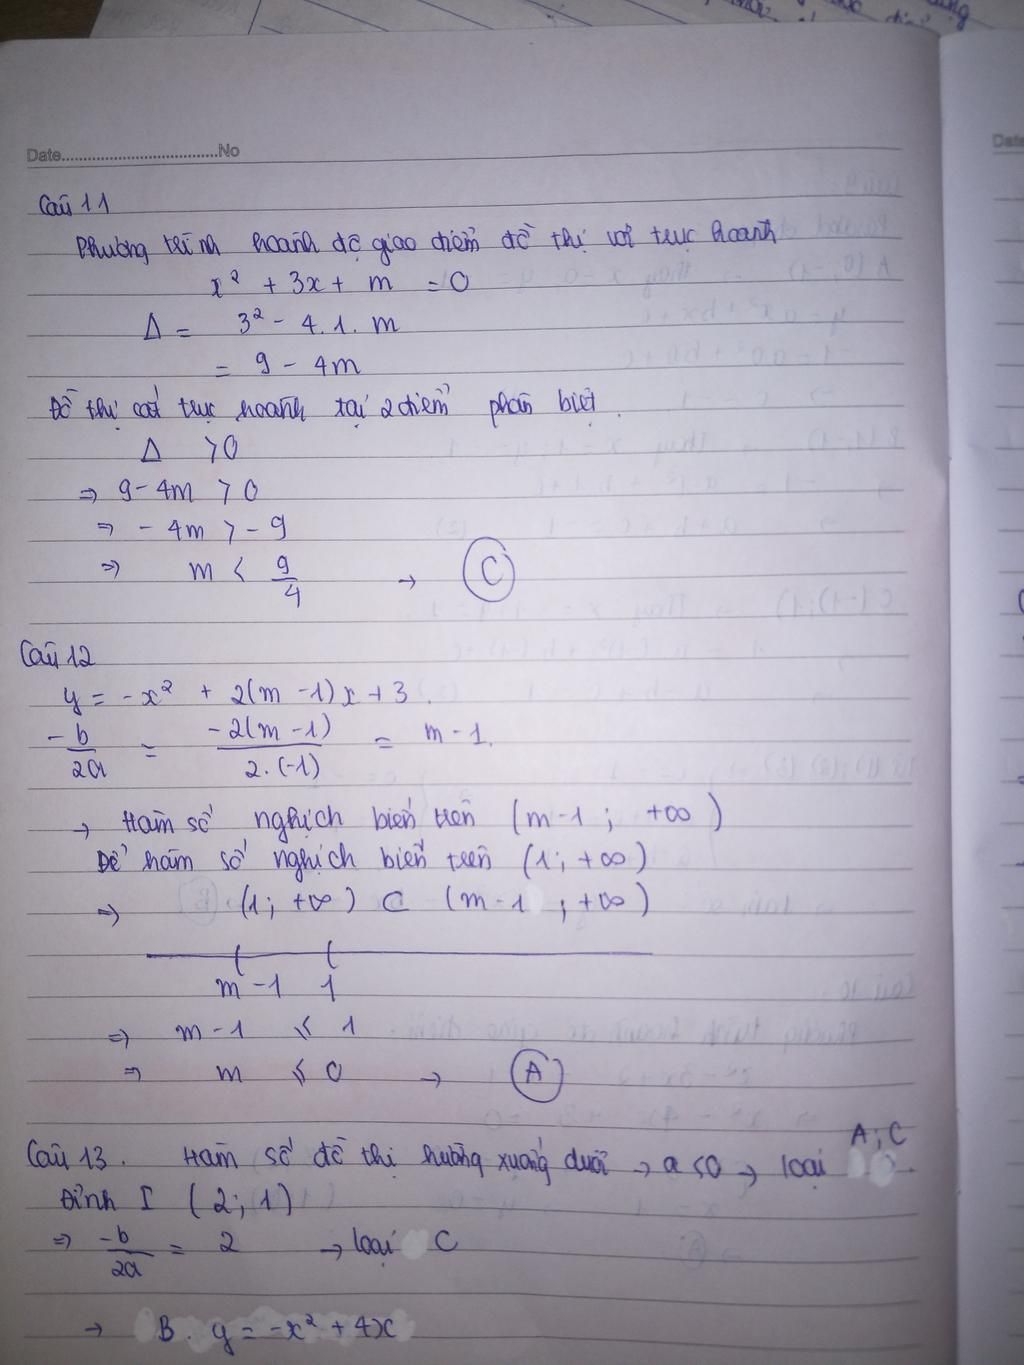 Date.....................................No
Câu 11
Phương trình hoành độ giao điểm đồ thị với trục hoành
x² + 3x + m = 0
Δ = 3² - 4.1.m
= 9 - 4m
Đồ thị cắt trục hoành tại 2 điểm phân biệt.
Δ > 0
⇒ 9 - 4m > 0
⇒ - 4m > - 9
⇒ m < 9/4 → C
Câu 12
y = -x² + 2(m - 1)x + 3.
-b/2a = -2(m - 1)/2.(-1) = m - 1.
→ Hàm số nghịch biến trên (m - 1 ; +∞)
Để hàm số nghịch biến trên (1; +∞)
⇒ (1; +∞) ⊂ (m - 1 ; +∞)
m - 1 1
⇒ m - 1 ≤ 1
⇒ m ≤ 0 → A
Câu 13. Hàm số đồ thị hướng xuống dưới → a < 0 → loại A; C.
Đỉnh I (2; 1)
⇒ -b/2a = 2 → loại C
→ B. y = -x² + 4x
Date